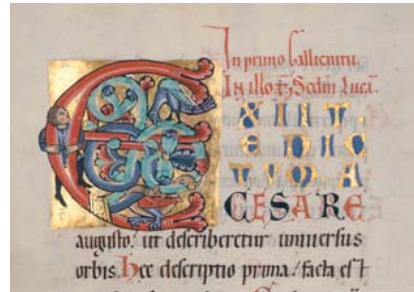 In primo Gallicantu.
In illo t̄. Scdm Lucā.
EXIIT
EDIC
TUM A
CESARE
augusto. ut describeretur universus
orbis. Hec descriptio prima. facta est